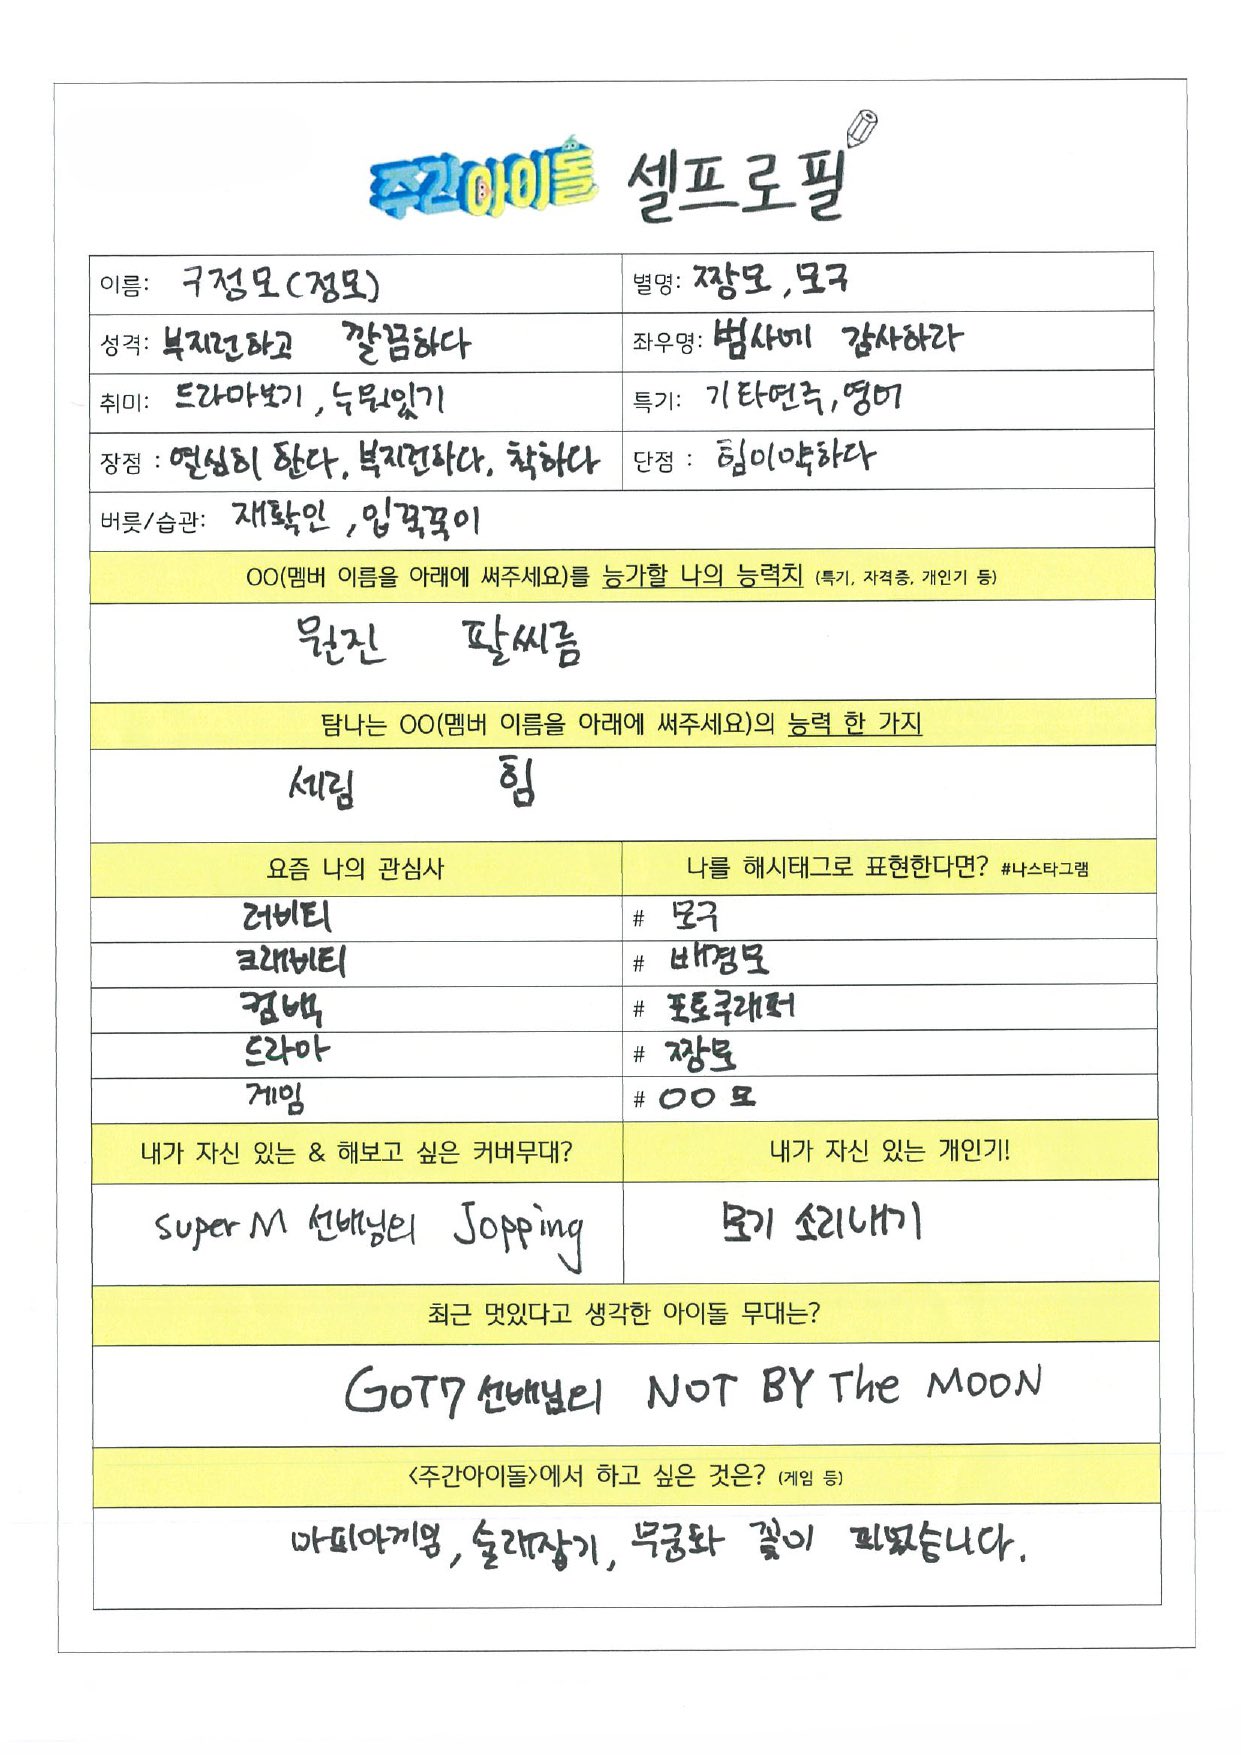 주간아이돌 셀프로필
이름: 구정모(정모) 별명: 짱모, 모구
성격: 부지런하고 깔끔하다 좌우명: 범사에 감사하라
취미: 드라마보기, 누워있기 특기: 기타연주, 영어
장점 : 열심히 한다, 부지런하다, 착하다 단점 : 힘이약하다
버릇/습관: 재확인, 입꾹꾹이
OO(멤버 이름을 아래에 써주세요)를 능가할 나의 능력치 (특기, 자격증, 개인기 등)
원진 팔씨름
탐나는 OO(멤버 이름을 아래에 써주세요)의 능력 한 가지
세림 힘
요즘 나의 관심사 나를 해시태그로 표현한다면? #나스타그램
러비티 # 모구
크래비티 # 배경모
컴백 # 포토쿠래퍼
드라마 # 짱모
게임 # OO모
내가 자신 있는 & 해보고 싶은 커버무대? 내가 자신 있는 개인기!
super M 선배님의 Jopping 모기 소리내기
최근 멋있다고 생각한 아이돌 무대는?
GOT7 선배님의 NOT BY The MOON
<주간아이돌>에서 하고 싶은 것은? (게임 등)
마피아께임, 술래잡기, 무궁화 꽃이 피었습니다.